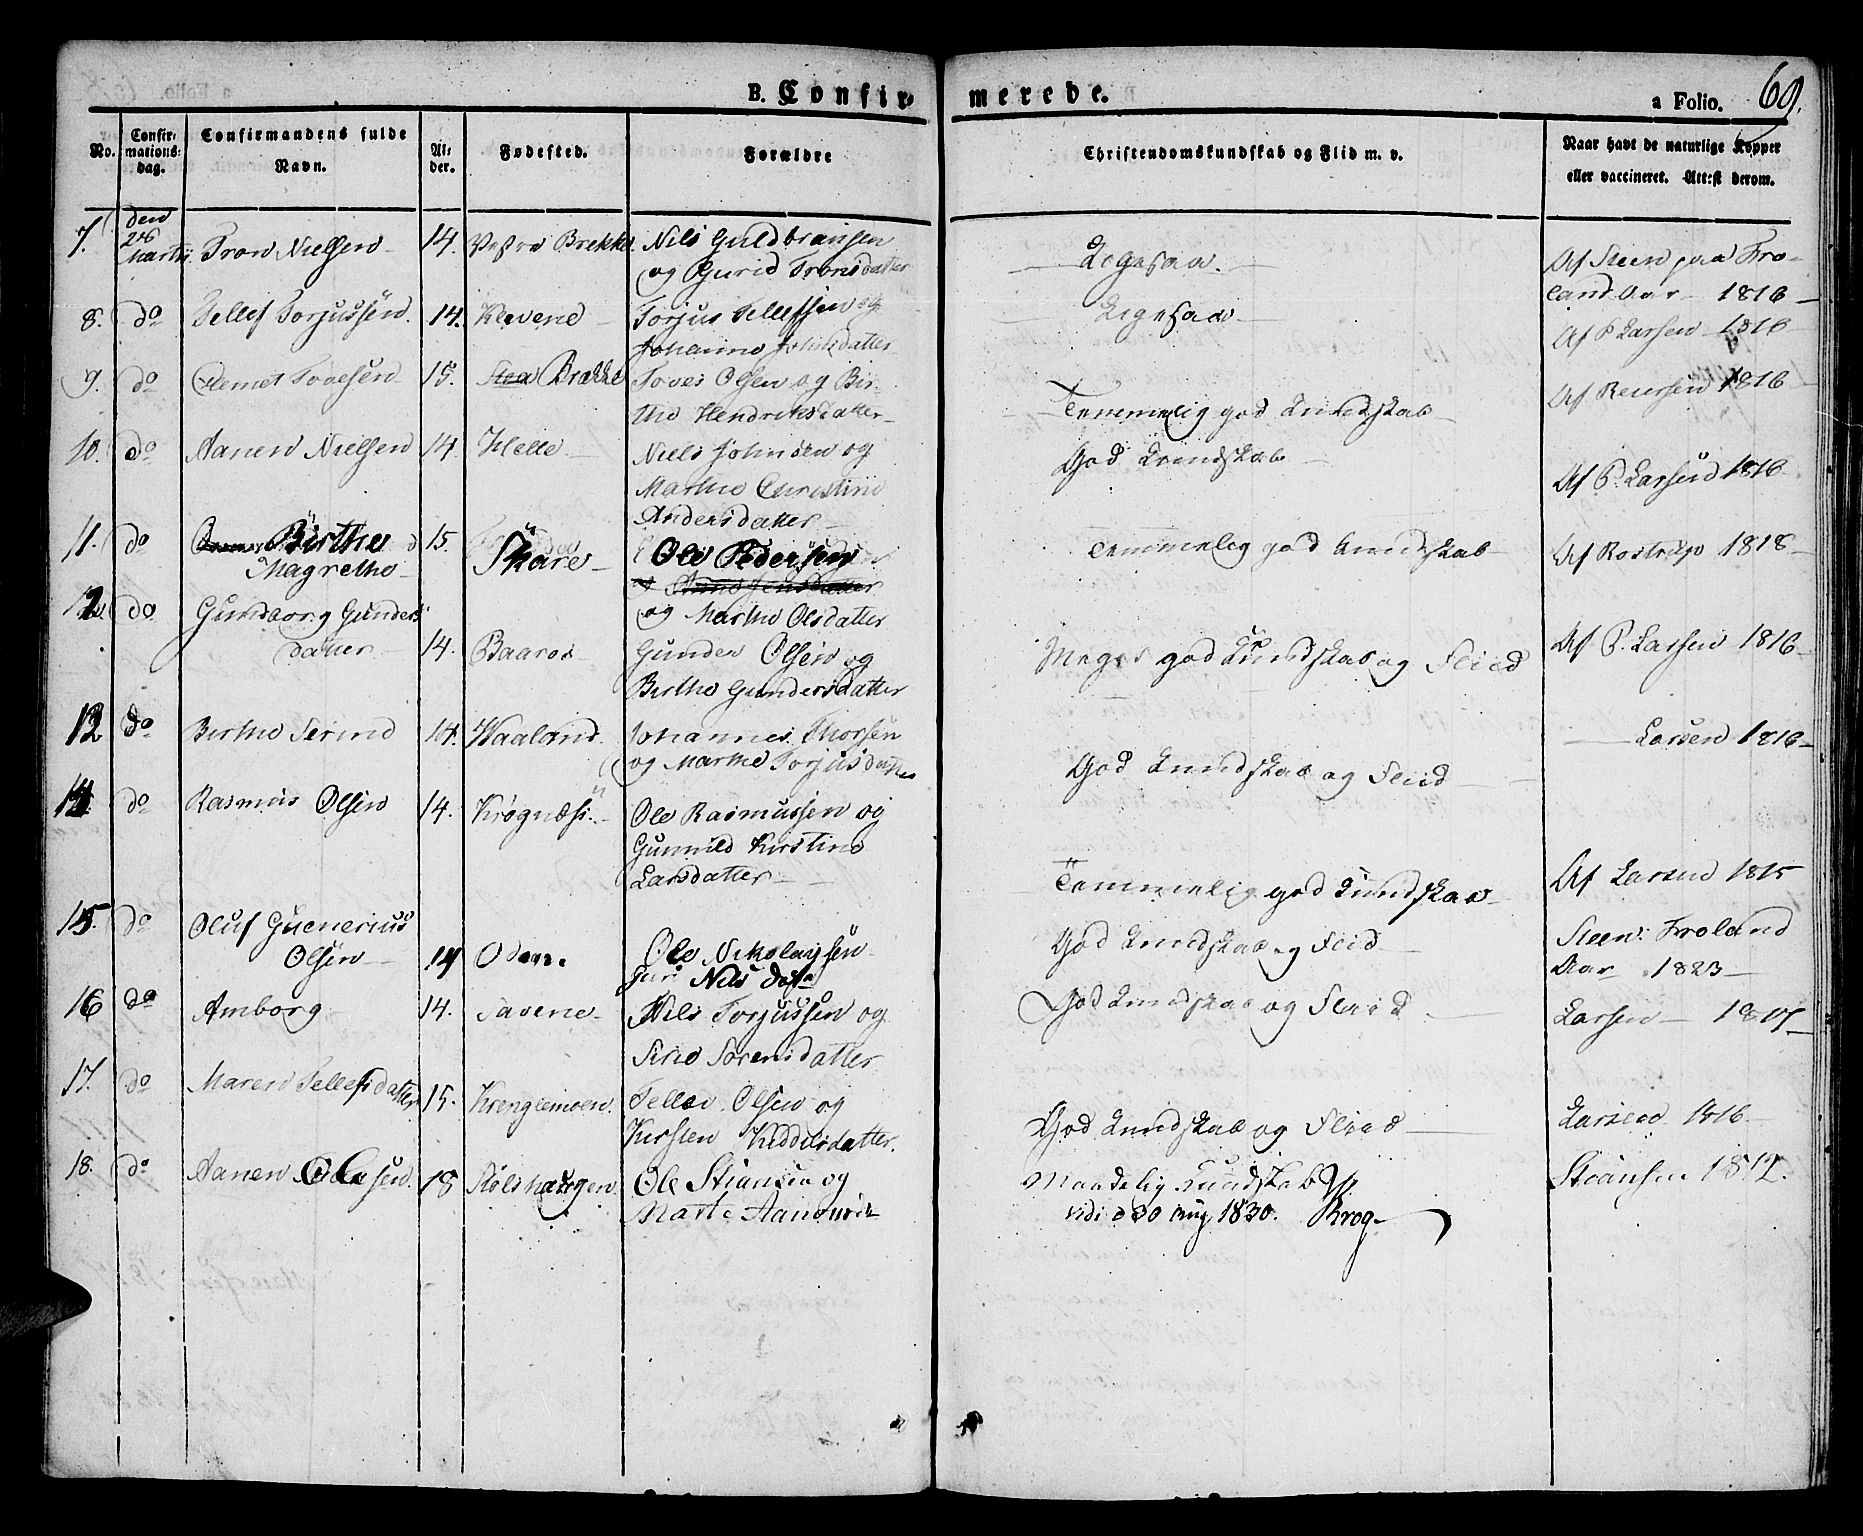 B. Confirmerede.
a Folio. 69.
No. Confirmationsdag. Confirmandens fulde Navn. Alder. Fødested. Forældre Christendomskundskab og Flid m. v. Naar havt de naturlige Kopper eller vaccineret. Att:st derom.
7. den Martii Tron Nielsen 14. Brekke Nils Guldbransen Ligesaa. Af Steen paa Fro-
og Gurid Tronsdatter land Aar 1816
8. do Tellef Torjussen. 14. Klevene Torjus Tellefsen og Ligesaa
Johanne Johnsdatter Af P Larsen 1816
9. do Clemet Tovesen 15. Brekke Toves Olsen og Bir- Temmelig god Kundskab Af Reiersen 1816
the Hendriksdatter
10. do Aanen Nielsen 14 Helle Niels Johnsen og God Kundskab
Marthe Christine Af P. Larsen 1816
Andersdatter
11. do Birthe 15. Skare Ole Pedersen Temmelig god Kundskab Af Rostrup 1818
Magrethe
12 do Gundborg Gunders og Marthe Olsdatter
datter 14. Baaros Gunder Olsen og Meget god Kundskab og Fliid Af P. Larsen 1816
Birthe Gundersdatter
13 do Birthe Serine 14. Haaland Johannes Thorsen Larsen 1816
og Marthe Torjusdatter God Kundskab og Fliid
14 do Rasmus Olsen 14. Krøgnæs Ole Rasmussen og
Gunnild Kirstine
Larsdatter Temmelig god Kundskab Af Larsen 1815
15. do Oluf Guenerius God Kundskab og Fliid Steen: Froland
Olsen 14 Odene. Ole Nikolaysen Aar 1823
Guri Nils dat
16 do Amborg 14. Savene Nils Torjussen og God Kundskab og Fliid Larsen 1817
Sirie Sørensdatter
17. do Maren Tellefsdatter 15. Krenglemoen. Tellev Olsen og
Kirsten Kiddelsdatter. God Kundskab og Fliid Larsen 1816
18. do Aanen Olesen. 18 Kølshaugen Ole Stiansen og Maadelig Kundskab Stiansen 1812.
Marte Aanund vidi d 30 Aug 1830. Krog